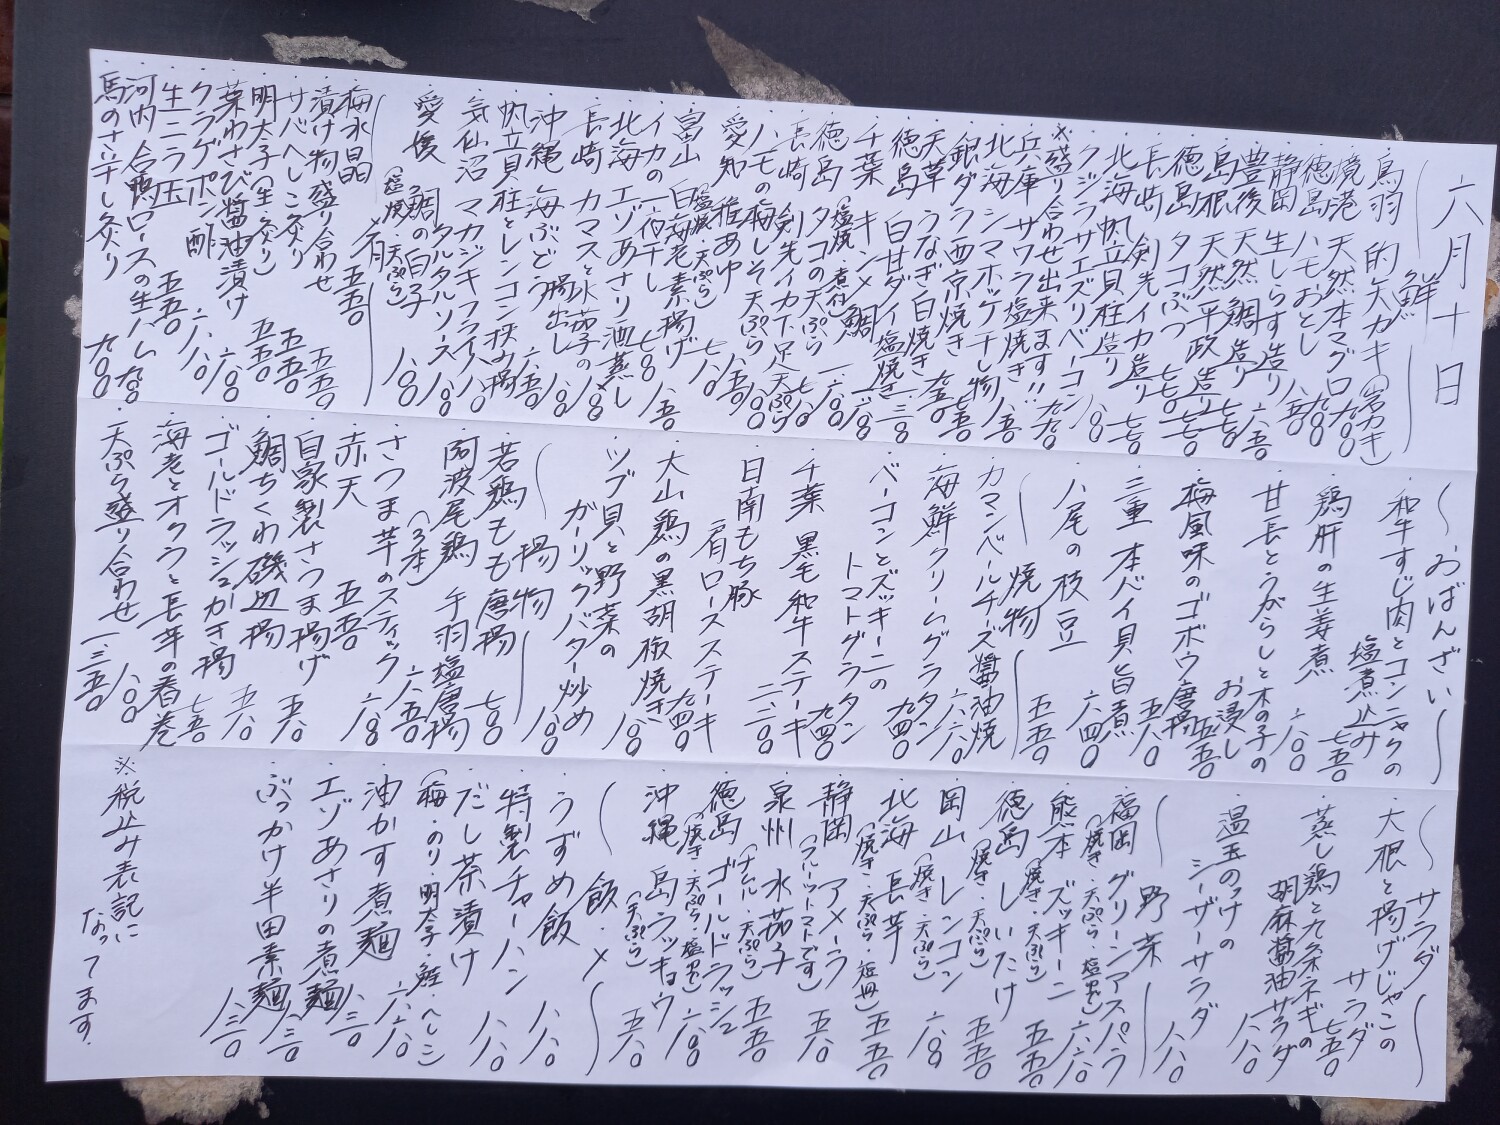 六月十日
鮮
鳥羽 的矢カキ(岩カキ) 九〇〇
境港 天然本マグロ 九八〇
徳島 ハモおとし 八五〇
静岡 生しらす造り 六五〇
豊後 天然鯛造り 七七〇
島根 天然平政造り 七七〇
徳島 タコぶつ 七七〇
長崎 剣先イカ造り 七七〇
北海 帆立貝柱造り 八〇〇
クジラサエズリベーコン 九九〇
※盛り合わせ出来ます!!
兵庫 サワラ塩焼き 八五〇
北海 シマホッケ干し物 七五〇
銀ダラ西京焼き 九五〇
天草 うなぎ白焼き
徳島 白甘ダイ塩焼き
千葉 キンメ鯛
(塩焼・煮付)
徳島 タコの天ぷら
長崎 剣先イカ下足(天ぷら)
ハモの梅しそ天ぷら 八五〇
愛知 稚あゆ 七八〇
(塩焼・天ぷら)
富山 白海老素揚げ 八五〇
イカの一夜干し 七〇〇
北海 エゾあさり酒蒸し 八〇〇
長崎 カマスと水茄子の揚出し
沖縄 海ぶどう 六五〇
帆立貝柱とレンコン挟み揚
気仙沼 マカジキフライ
タルタルソース 八〇〇
愛媛 鯛の白子 八〇〇
(塩焼・天ぷら)
〆肴
梅水晶 五五〇
漬け物盛り合わせ 五五〇
サバへしこ炙り 五五〇
明太子(生・炙り) 五五〇
葉わさび醤油漬け
クラゲポン酢
生ニラ玉 五五〇
河内合鴨ロースの生ハム 九〇〇
馬のさい干し炙り 九〇〇
おばんざい
和牛すじ肉とコンニャクの
塩煮込み 七五〇
鶏肝の生姜煮
甘長とうがらしと木の子の
お浸し 五五〇
梅風味のゴボウ唐揚 五八〇
三重 本バイ貝旨煮 六四〇
八尾の枝豆 五五〇
焼物
カマンベールチーズ醤油焼 六六〇
海鮮クリームグラタン 九四〇
ベーコンとズッキーニの
トマトグラタン 九四〇
千葉 黒毛和牛ステーキ 二、二〇〇
日南もち豚
肩ロースステーキ 九四〇
大山鶏の黒胡椒焼き
ツブ貝と野菜の
ガーリックバター炒め
揚物
若鶏もも唐揚 七〇〇
阿波尾鶏 手羽塩唐揚
(3本) 六五〇
さつま芋のスティック 六八〇
赤天 五五〇
自家製さつま揚げ 五八〇
鯛ちくわ磯辺揚 五八〇
ゴールドラッシュかき揚 七五〇
海老とオクラと長芋の春巻 八〇〇
天ぷら盛り合わせ 一、三五〇
サラダ
大根と揚げじゃこの
サラダ 七五〇
蒸し鶏と九条ネギの
胡麻醤油サラダ 八八〇
温玉のっけの
シーザーサラダ 八八〇
野菜
福岡 グリーンアスパラ 六六〇
(焼き・天ぷら・塩昆)
熊本 ズッキーニ 五五〇
(焼き・天ぷら)
徳島 しいたけ 五五〇
(焼き・天ぷら)
岡山 レンコン
(焼き・天ぷら)
北海 長芋 五五〇
(焼き・天ぷら・短冊)
静岡 アメーラ 五八〇
(フルーツトマトです)
泉州 水茄子 五五〇
(ナムル・天ぷら)
徳島 ゴールドラッシュ
(焼き・天ぷら・塩昆)
沖縄 島ラッキョウ 五八〇
(天ぷら)
飯・〆
うずめ飯 八八〇
特製チャーハン 八八〇
だし茶漬け
(梅・のり・明太子・鮭・へしこ)
油かす煮麺
エゾあさりの煮麺 八三〇
ぶっかけ半田素麺 八三〇
※税込み表記に
なってます.